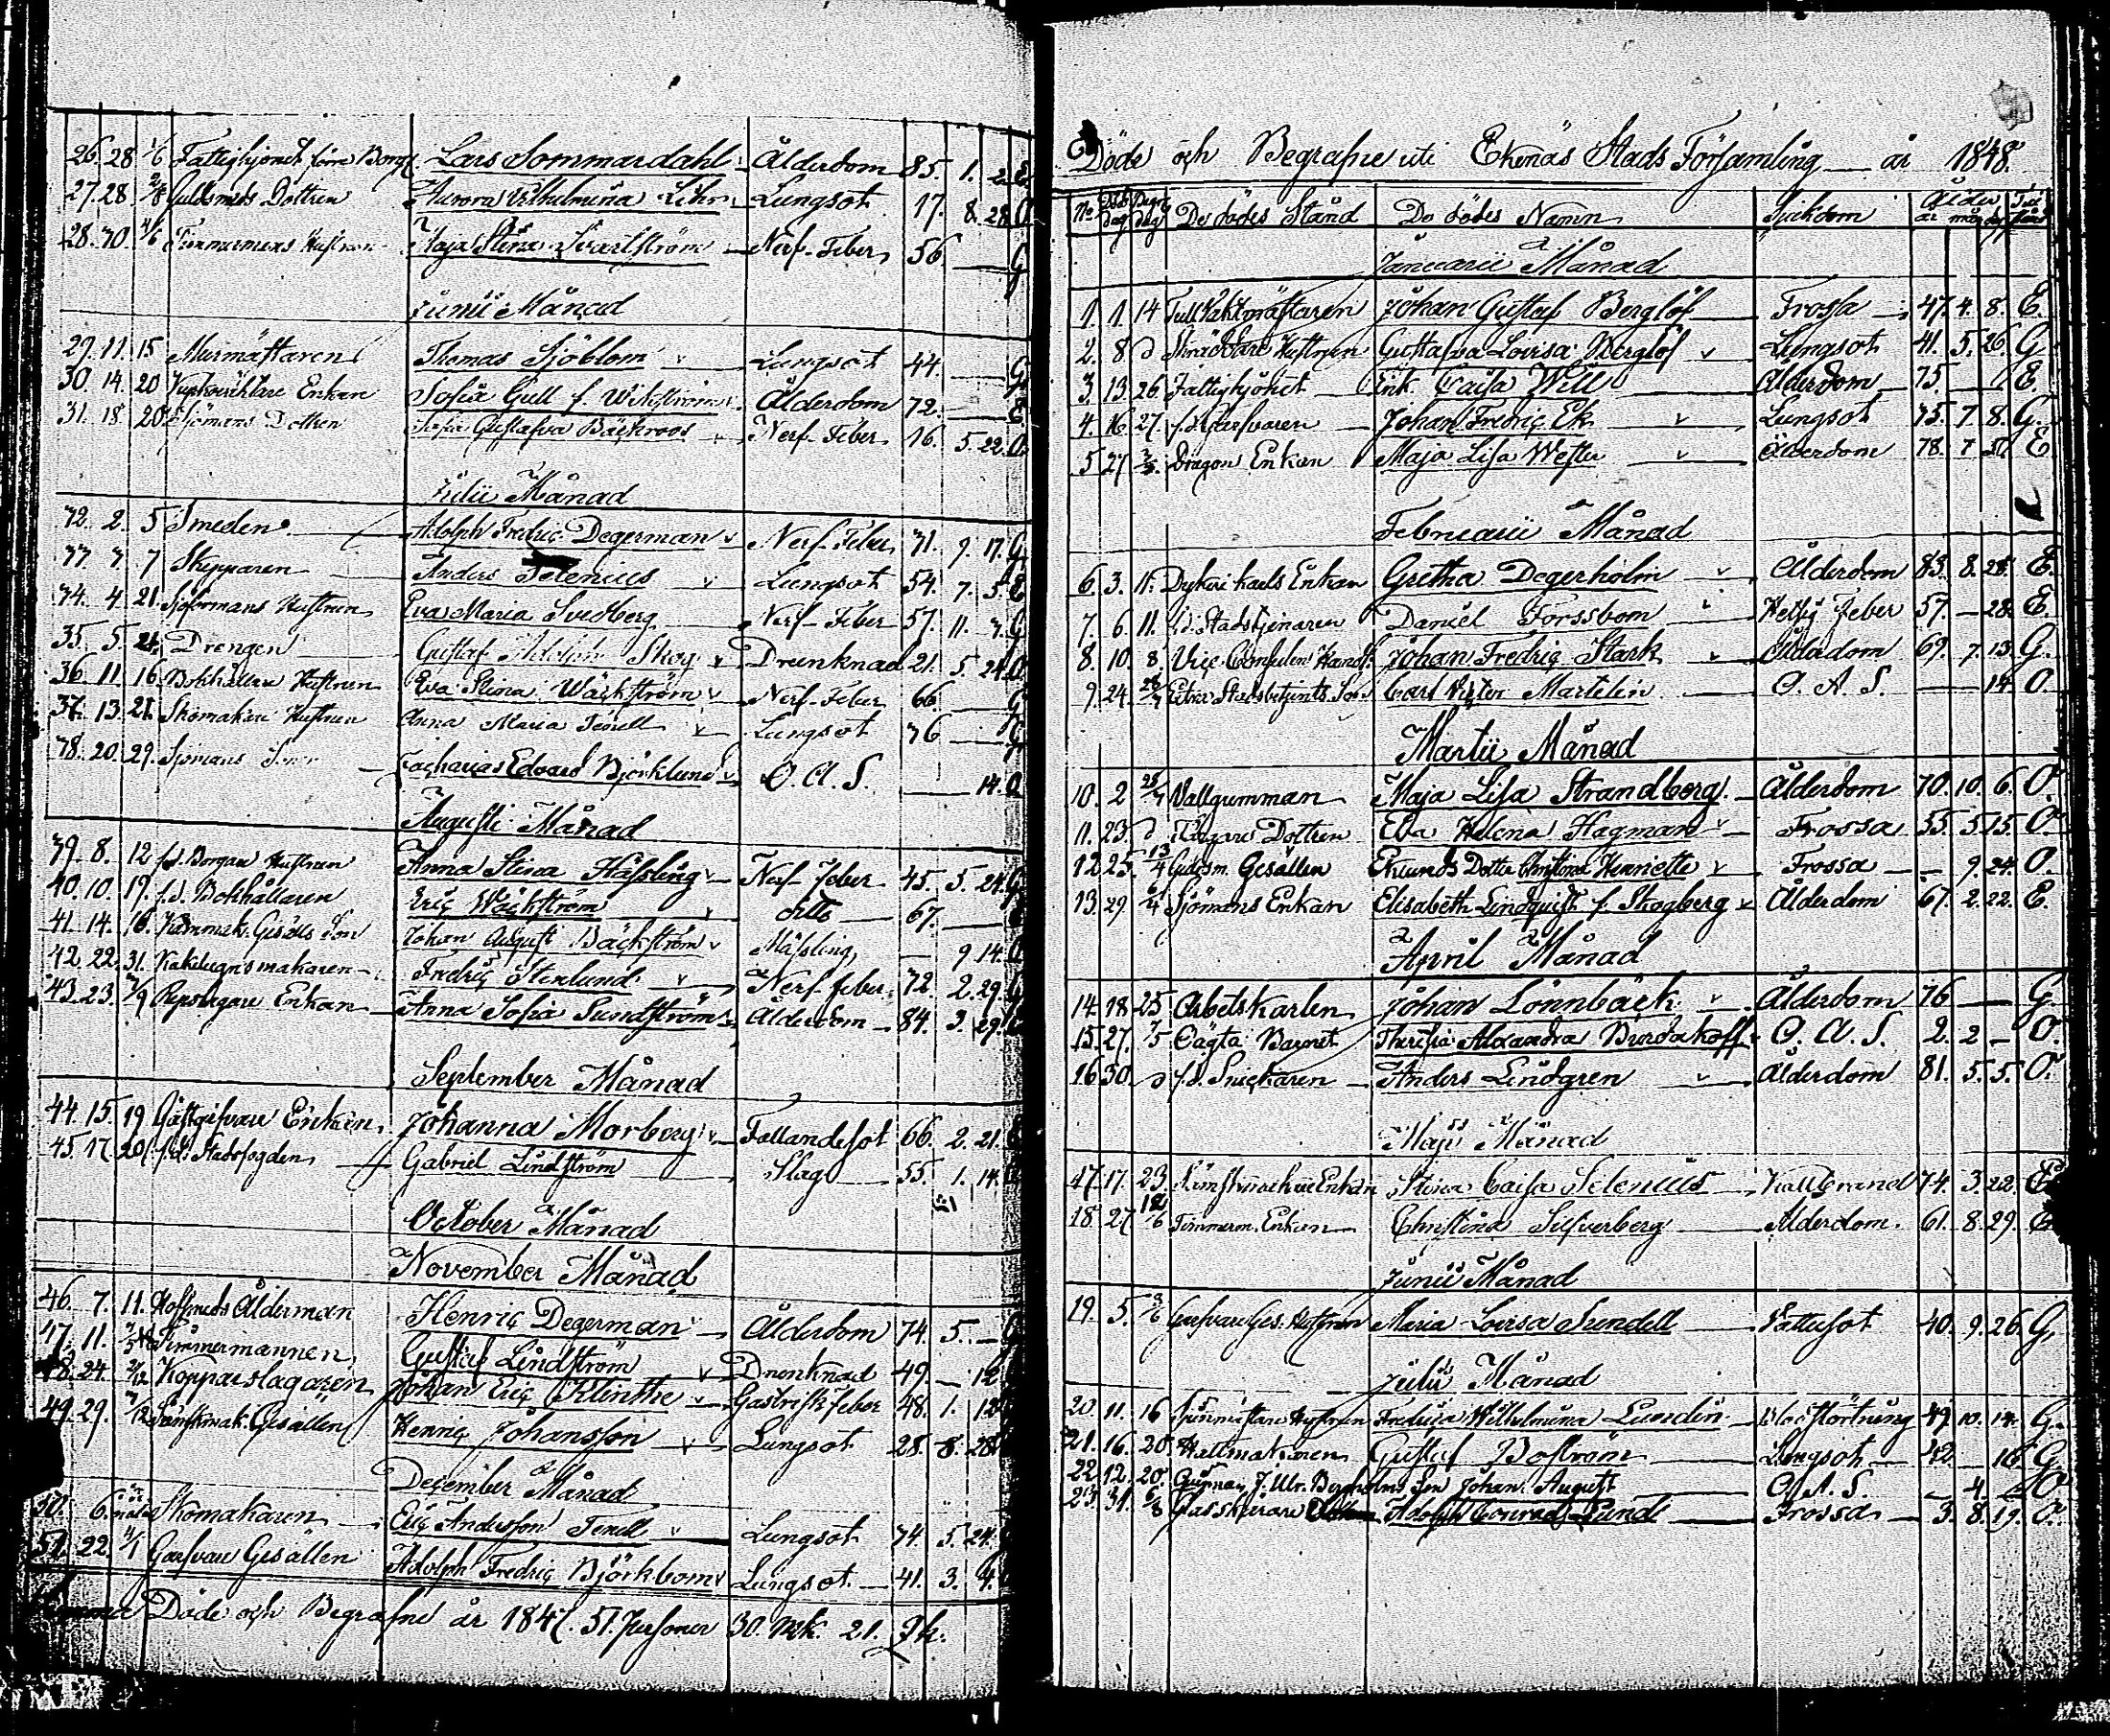 26. 28. 1/6 Fattighjonet förra Borg. Lars Sommardahl Ålderdom 85. 1. 2. E.
27. 28 2/6 Guldsmeds Dottren Aurora Vilhelmina Lihr Lungsot 17. 8. 28. O.
28. 30. 4/6 Timmermans Hustrun Maja Stina Svartström Nerf-Feber 56. — G
Junii Månad
29. 11. 15 Murmästaren Thomas Sjöblom Lungsot 44. — G
30. 14. 20 Enkan Sofia Gull f. Wikström Ålderdom 72. — E
31. 18. 20 Sjömans Dottren Sofia Gustafva Bäckroos Nerf-Feber 16. 5. 22. O.
Julii Månad
32. 2. 5 Smeden Adolph Fredric Degerman Nerf-Feber 31. 9. 17. G
33. 3. 7 Skepparen Anders Selenius Lungsot 54. 7. 5. E
34. 4. 21. Hustrun Eva Maria Svedberg Nerf-Feber 57. 11. 3. G
35. 5. 24. Drengen Gustaf Adolph Skog Drunknad 21. 5. 21. O
36. 11. 16. Bokhållare Hustrun Eva Stina Wäckström Nerf-Feber 66. — G
37. 13. 21. Skomakare Hustrun Anna Maria Tenell Lungsot 36 — G
38. 20. 29. Sjömans Son Zacharias Edvard Björklund O. A. S. — 14. O
Augusti Månad
39. 8. 12 f.d. Borgare Hustrun Anna Stina Hässling Nerf-Feber 45. 5. 24. G
40. 10. 19. f.d. Bokhållaren Eric Wäckström dito 67. —
41. 14. 16. Gesälls Son Johan August Bäckström Mässling — 9. 14. O
42. 22. 31. Kakelugnsmakaren Fredric Stenlund Nerf feber 32. 2. 29. G
43. 23. 3/9 Repslagare Enkan Anna Sofia Sundström Ålderdom 84. 3. 29.
September Månad
44. 15. 19 Gästgifvare Enkan Johanna Morberg Fallandesot 66. 2. 21.
45. 17. 20 f.d. Stadsfogden Gabriel Lindström Slag 55. 1. 14.
October Månad
November Månad
46. 7. 11. Hofsmeds Ålderman Henric Degerman Ålderdom 74. 5. — G
47. 11. Timmermannen Gustaf Lindström Drunknad 49. — 12
48. 24. 2/12 Kopparslagaren Johan Eric Klinthe Gastrisk feber 48. 1. 12
49. 29. 3/12 Gesällen Henric Johansson Lungsot 28. 8. 28
December Månad
50. 6. Skomakaren Eric Andersson Tenell Lungsot 74. 5. 24.
51. 22. 4/1 Garfvare Gesällen Adolph Fredric Björkbom Lungsot 41. 3. 4.
Summa Döde och Begrafne år 1847. 51. Personer 30. Mk. 21. Qk.
Döde och Begrafne uti Ekenäs Stads Församling år 1848.
No Död dag Begr. dag De dödes Stånd De dödes Namn Sjukdom Ålder år mån dag
Januarii Månad
1. 1. 14 Tull Vaktmästaren Johan Gustaf Berglöf Frossa 47. 4. 8. E.
2. 8. d Skräddare Hustrun Gustafva Lovisa Berglöf Lungsot 41. 5. 26. G.
3. 13. 26. Fattighjonet Enk. Caisa Will Ålderdom 75. — E
4. 16. 27. f.d. Garfvaren Johan Fredric Ek Lungsot 75. 7. 8. G.
5. 27. Dragon Enkan Maja Lisa Wester Ålderdom 78. 7. E
Februarii Månad
6. 3. 11. Enkan Gretha Degerholm Ålderdom 83. 8. 28. E.
7. 6. 11. f.d. Stadstjenaren Daniel Forssbom Hetsig Feber 57. — 28. E.
8. 10. 8. Vice Consulen Handl. Johan Fredric Stark Ålderdom 69. 7. 13. G.
9. 24. Carl Victor Martelin O. A. S. — 14. O.
Martii Månad
10. 2. Vallgumman Maja Lisa Strandberg Ålderdom 70. 10. 6. O.
11. 23. d Dottren Eva Helena Hagman Frossa 55. 5. 15. O.
12 25. 13/4 Guldsm. Gesällen Eklunds Dotter Christina Henriette Frossa — 9. 24. O.
13. 29. Sjömans Enkan Elisabeth Lindquist f. Skogberg Ålderdom 67. 2. 22. E.
April Månad
14. 18. 25. Arbetskarlen Johan Lönnbäck Ålderdom 76 — G.
15. 27. 7/5 Oägta Barnet Theresia Alexandra O. A. S. 2. 2 — O.
16. 30. d f.d. Snickaren Anders Lindgren Ålderdom 81. 5. 5. O.
Maji Månad
17. 17. 23. Enkan Stina Caisa Selenius Kallbrand 74. 3. 22. E
18. 27. 12/6 Timmerm. Enkan Christina Silfverberg Ålderdom. 61. 8. 29. E
Junii Månad
19. 5. Garfvare Ges. Hustrun Maria Lovisa Sundell Vattusot 40. 9. 26. G.
Julii Månad
20. 11. 16 Hustrun Fredrica Wilhelmina Lundin Blodstörtning 49. 10. 14. G.
21. 16. 20. Hattmakaren Gustaf Boström Lungsot 42. — 16. G.
22. 12. 20. J. Ulr. Bergholms Son Johan August O. A. S. — 4. — O
23. 31. 6/8 Adolph Conrad Lund Frossa 3. 8. 19. O.